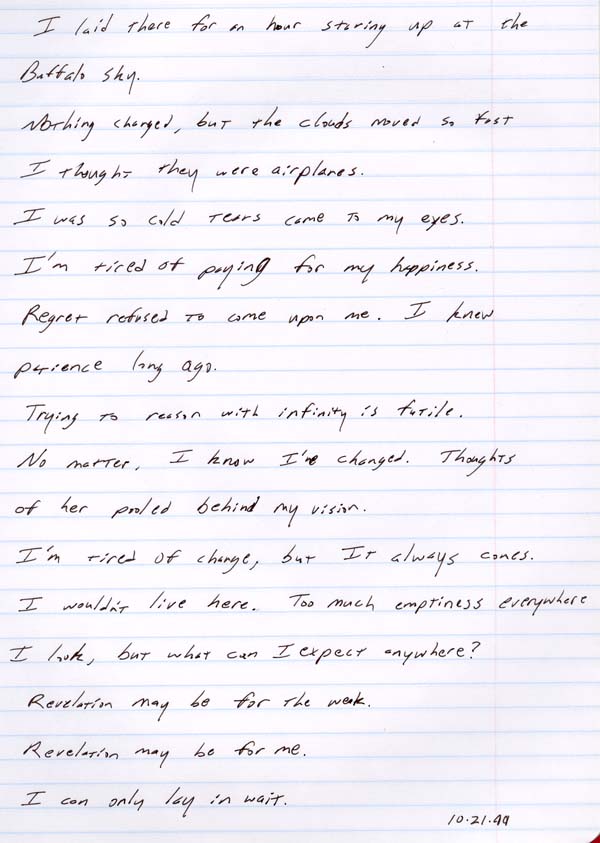 I laid there for an hour staring up at the
Buffalo sky.
Nothing changed, but the clouds moved so fast
I thought they were airplanes.
I was so cold tears came to my eyes.
I'm tired of paying for my happiness.
Regret refused to come upon me. I knew
patience long ago.
Trying to reason with infinity is futile.
No matter, I know I've changed. Thoughts
of her pooled behind my vision.
I'm tired of change, but It always comes.
I wouldn't live here. Too much emptiness everywhere
I look, but what can I expect anywhere?
Revelation may be for the weak.
Revelation may be for me.
I can only lay in wait.
10.21.99